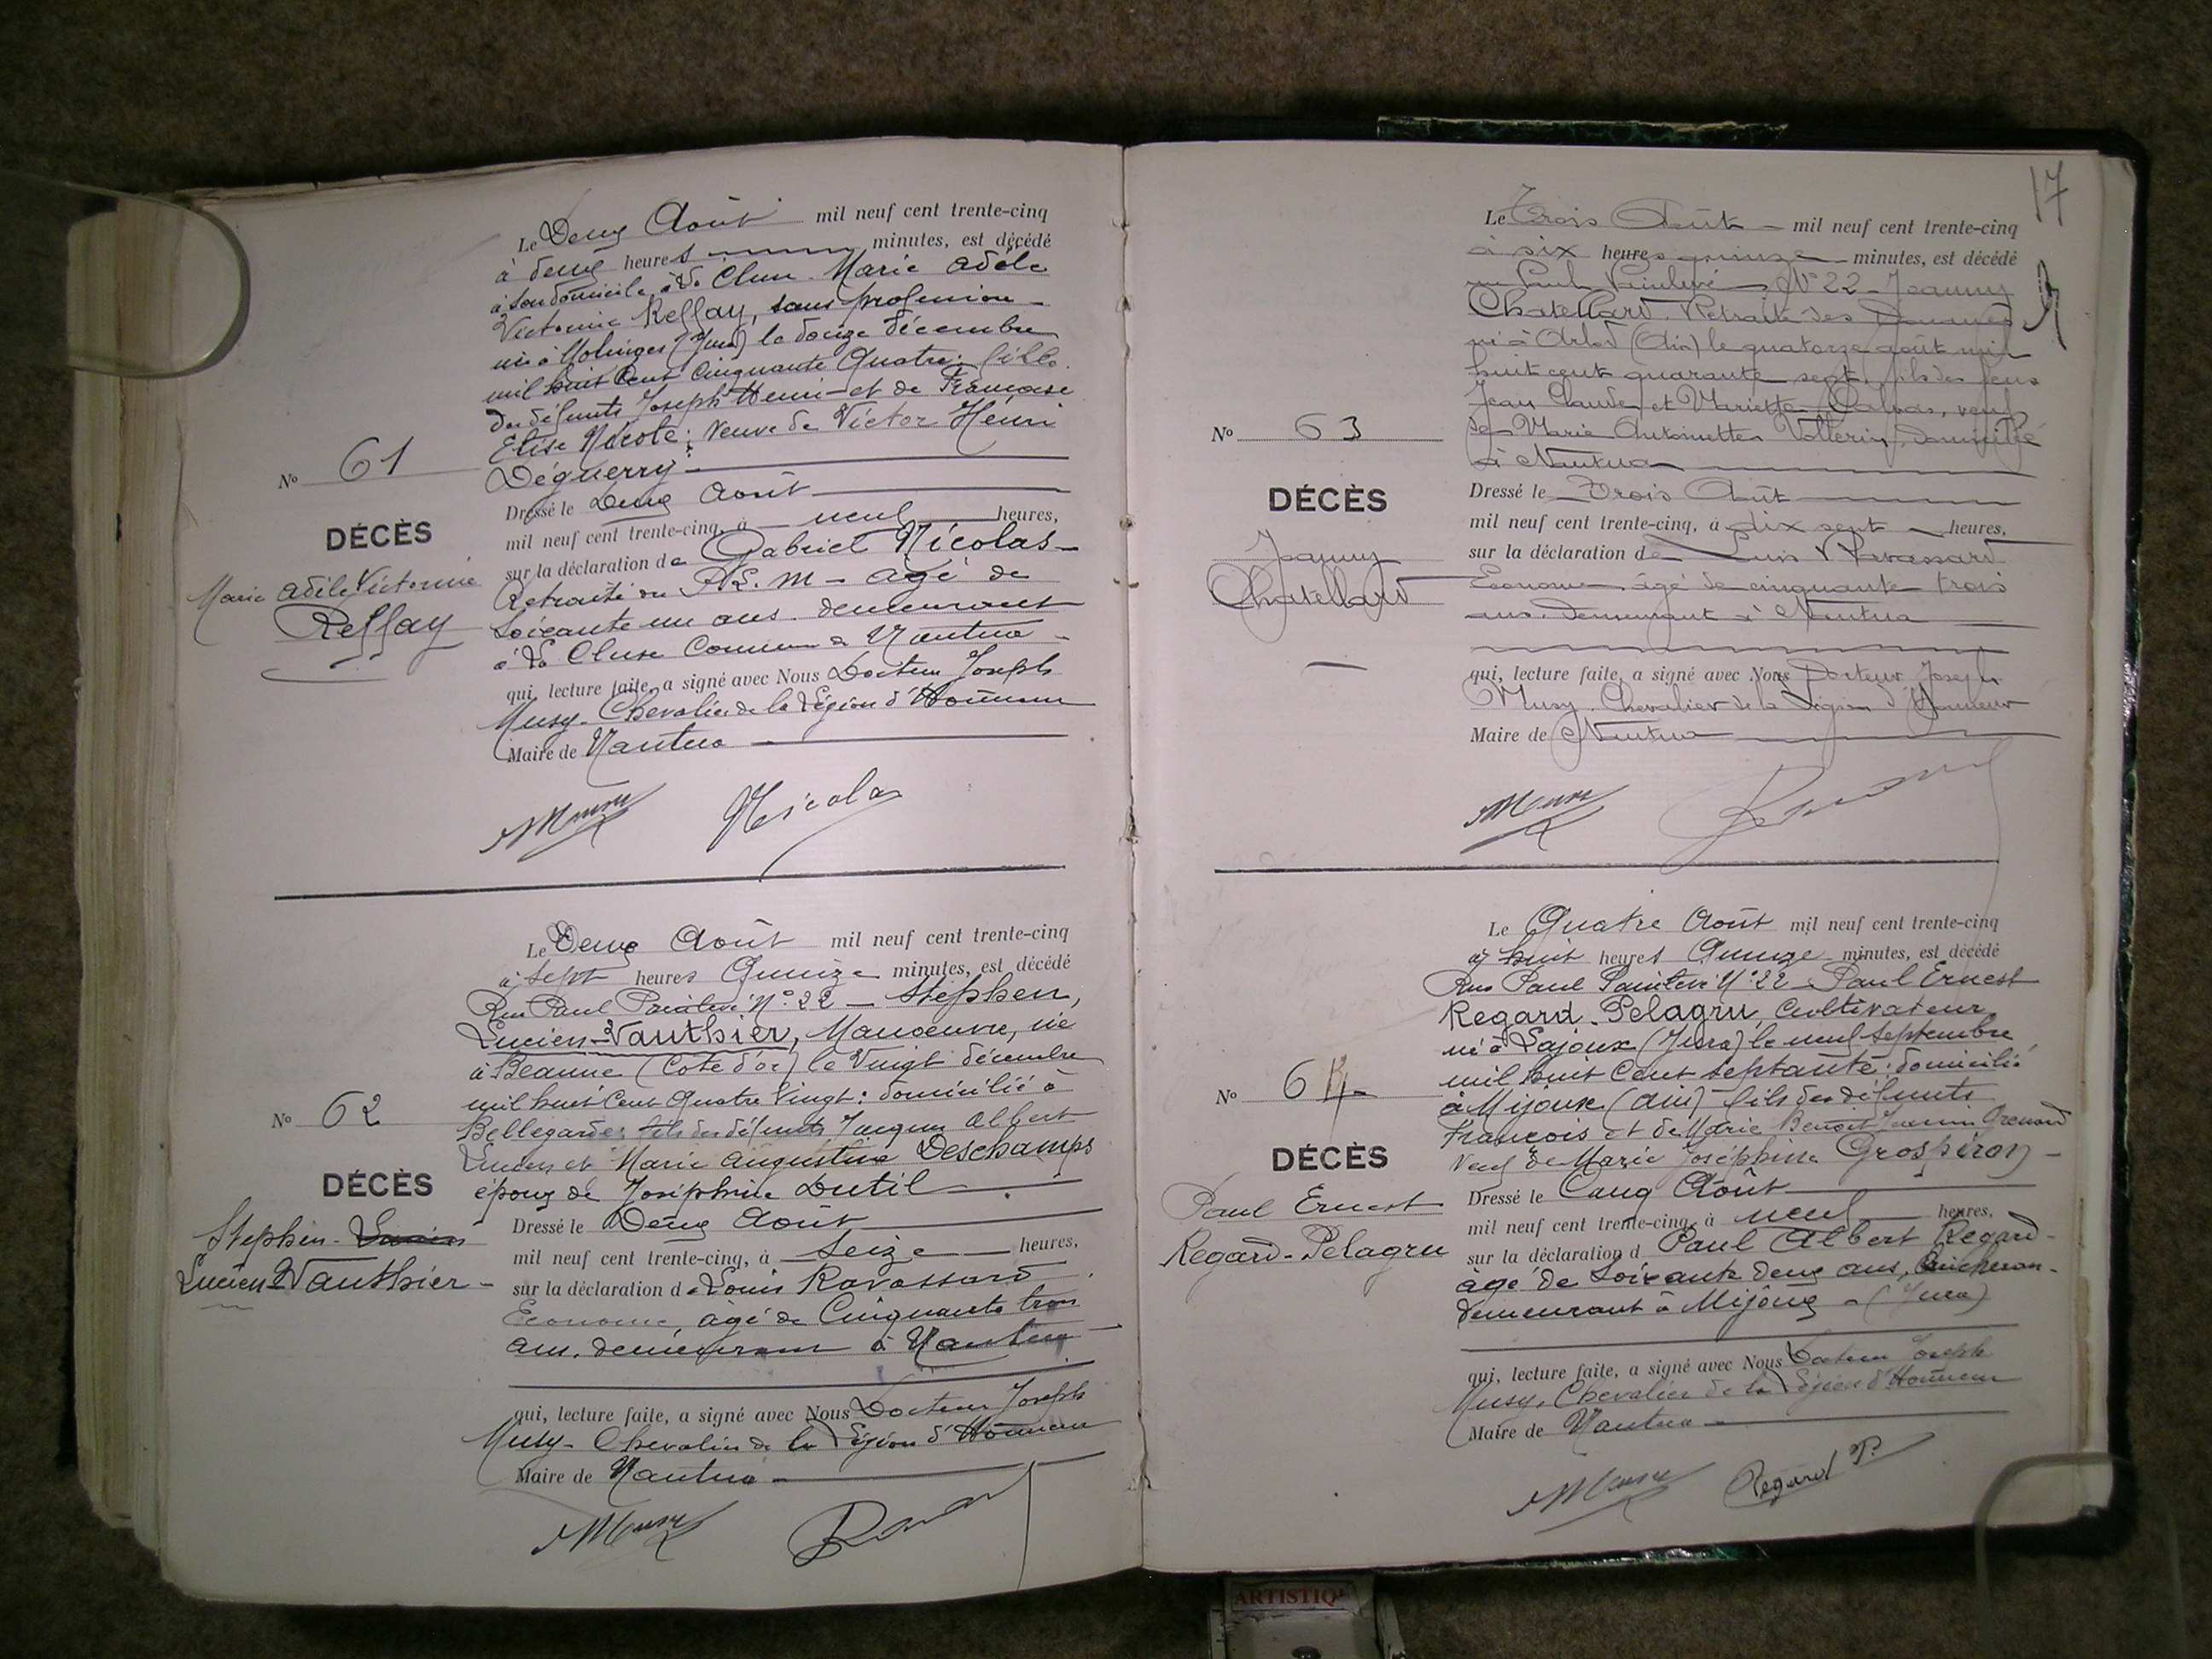 Le Deux Août mil neuf cent trente-cinq
à deux heures minutes, est décédé
à son domicile, à La Cluse Marie Adèle
Victorine Reffay, sans profession
née à Molinges (Jura) le douze décembre
mil huit cent cinquante quatre; fille
des défunts Joseph Henri et de Françoise
Elise Nicole; veuve de Victor Hénri
Déguerry
No 61
DÉCÈS
Marie Adèle Victorine
Reffay
Dressé le Deux Août
mil neuf cent trente-cinq, à neuf heures,
sur la déclaration de Gabriel Nicolas
Retraité du P.L.M - agé de
soixante un ans. demeurant
à La Cluse Commune de Nantua
qui, lecture faite, a signé avec Nous Docteur Joseph
Musy. Chevalier de la Légion d'Honneur
Maire de Nantua
Nicolas
Le Deux Août mil neuf cent trente-cinq
à sept heures Quinze minutes, est décédé
Rue Paul Painlevé N° 22 - Stéphen,
Lucien-Vauthier, Manoeuvre, né
à Beaune (Cote d'or) le Vingt décembre
mil huit Cent Quatre Vingt: domicilié à
Bellegarde; fils des défunts Jacques Albert
Lucien et Marie Augustine Deschamps
époux de Joséphine Dutil
No 62
DÉCÈS
Stephen - Lucien
Lucien Vauthier
Dressé le Deux Août
mil neuf cent trente-cinq, à Seize heures,
sur la déclaration de Louis Ravassard
Econome, âgé de Cinquante trois
ans. demeurant à Nantua
qui, lecture faite, a signé avec Nous Docteur Joseph
Musy - Chevalier de la Légion d'Honneur
Maire de Nantua
17
Le Trois Août mil neuf cent trente-cinq
à six heures quinze minutes, est décédé
rue Paul Painlevé N° 22 - Joanny
Chatellard. Retraité des Douanes
né à Arlod (Ain) le quatorze août mil
huit cent quarante sept, fils des feus
Jean Claude et Mariette, veuf
de Marie Antoinette Vollerin, domicilié
à Nantua
No 63
DÉCÈS
Joanny
Chatellard
Dressé le Trois Août
mil neuf cent trente-cinq, à dix sept heures,
sur la déclaration de Louis Ravassard
Econome âgé de cinquante trois
ans. demeurant à Nantua
qui, lecture faite, a signé avec Nous Docteur Joseph
Musy. Chevalier de la Légion d'Honneur
Maire de Nantua
Le Quatre Août mil neuf cent trente-cinq
à huit heures Quinze minutes, est décédé
Rue Paul Painlevé N° 22 - Paul Ernest
Regard-Pelagru, Cultivateur
né à Lajoux (Jura) le neuf septembre
mil huit Cent septante; domicilié
à Mijoux (Ain) - fils des défunts
François et de Marie Benoit Grenard
Veuf de Marie Joséphine Grospiron
No 64
DÉCÈS
Paul Ernest
Regard-Pelagru
Dressé le Cinq Août
mil neuf cent trente-cinq, à neuf heures,
sur la déclaration d Paul Albert Regard
âgé de soixante deux ans,
demeurant à Mijoux - (Jura)
qui, lecture faite, a signé avec Nous Docteur Joseph
Musy, Chevalier de la Légion d'Honneur
Maire de Nantua
Regard P.
ARTISTIQ